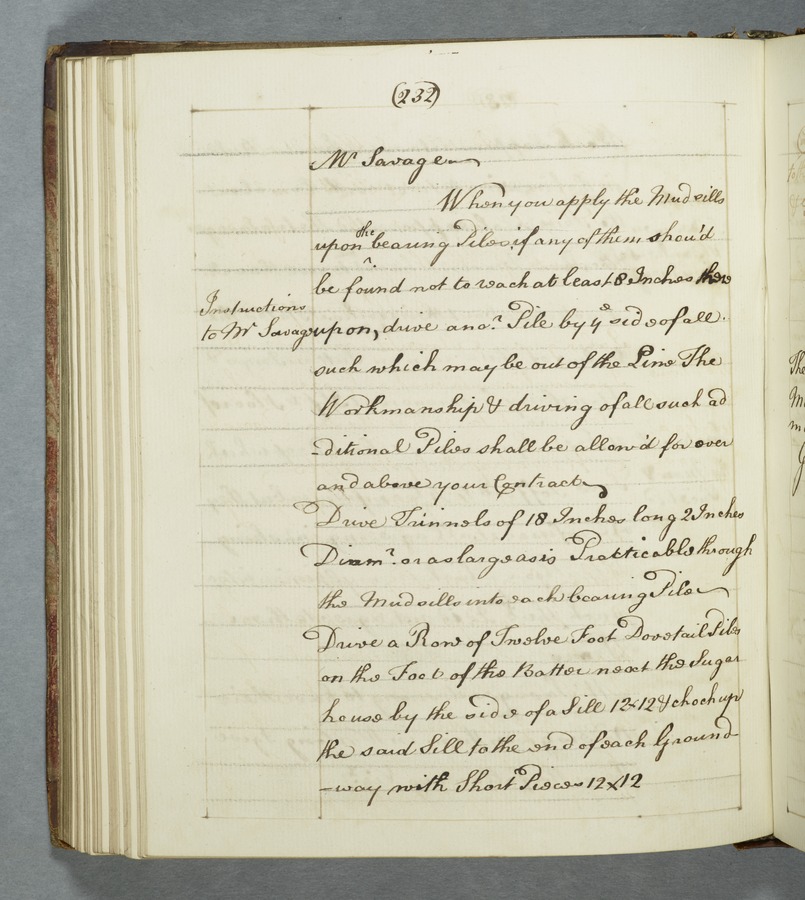 (232)
Mr Savage
When you apply the Mudsills
upon the bearing Piles if any of them shou'd
be found not to reach at least 8 Inches there
Instructions
to Mr Savage
upon, drive anor. Pile by ye side of all
such which may be out of the Line The
Workmanship & driving of all such ad
-ditional Piles shall be allow'd for over
and above your Contract
Drive Trinnels of 18 Inches long 2 Inches
Diamr. or as large as is Practicable through
the Mudsills into each bearing Pile
Drive a Row of Twelve Foot Dovetail Piles
on the Foot of the Batter next the Sugar
house by the side of a Sill 12x12 & chock up
the said Sill to the end of each Ground
-way with Short Pieces 12x12